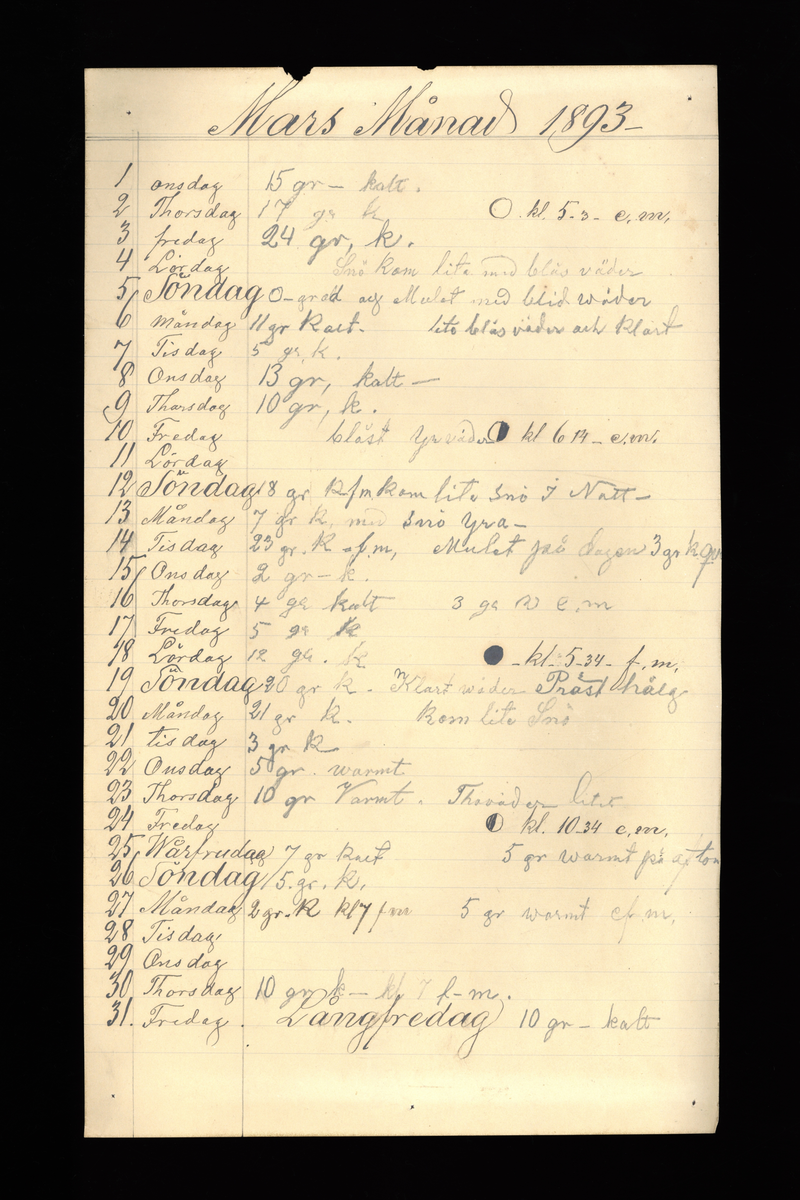 Mars Månad 1893-
1 onsdag 15 gr - kalt.
2 Thorsdag 17 gr k kl. 5-3- e.m.
3 fredag 24 gr, k.
4 Lördag Snö kom lite med blås väder
5 Söndag 0-grad och Mulet med blid wäder
6 Måndag 11 gr kalt. lite blås väder och klart
7 Tisdag 5 gr, k.
8 Onsdag 13 gr, kalt -
9 Tharsdag 10 gr, k.
10 Fredag blåst Yrväder kl 6 14 - e.m.
11 Lördag
12 Söndag 18 gr k f m kom lite snö i Natt -
13 Måndag 7 gr k, med snö yra -
14 Tisdag 23 gr. k - f.m, Mulet på dagen 3 gr k
15 Onsdag 2 gr - k.
16 Thorsdag 4 gr kalt 3 gr e.m
17 Fredag 5 gr k
18 Lördag 12 gr. k - kl. 5-34- f.m.
19 Söndag 20 gr k. Klart wäder Präst hälg
20 Måndag 21 gr k. kom lite Snö
21 tisdag 3 gr k
22 Onsdag 5 gr. warmt
23 Thorsdag 10 gr Varmt. Thöväder litet
24 Fredag kl. 10-34 e.m.
25 Wårfrudag 7 gr kalt 5 gr warmt på afton
26 Söndag 15. gr. k.
27 Måndag 2 gr. k kl 7 fm 5 gr warmt ef.m.
28 Tisdag
29 Onsdag
30 Thorsdag 10 gr k - kl 7 f-m.
31. Fredag. Långfredag 10 gr - kalt